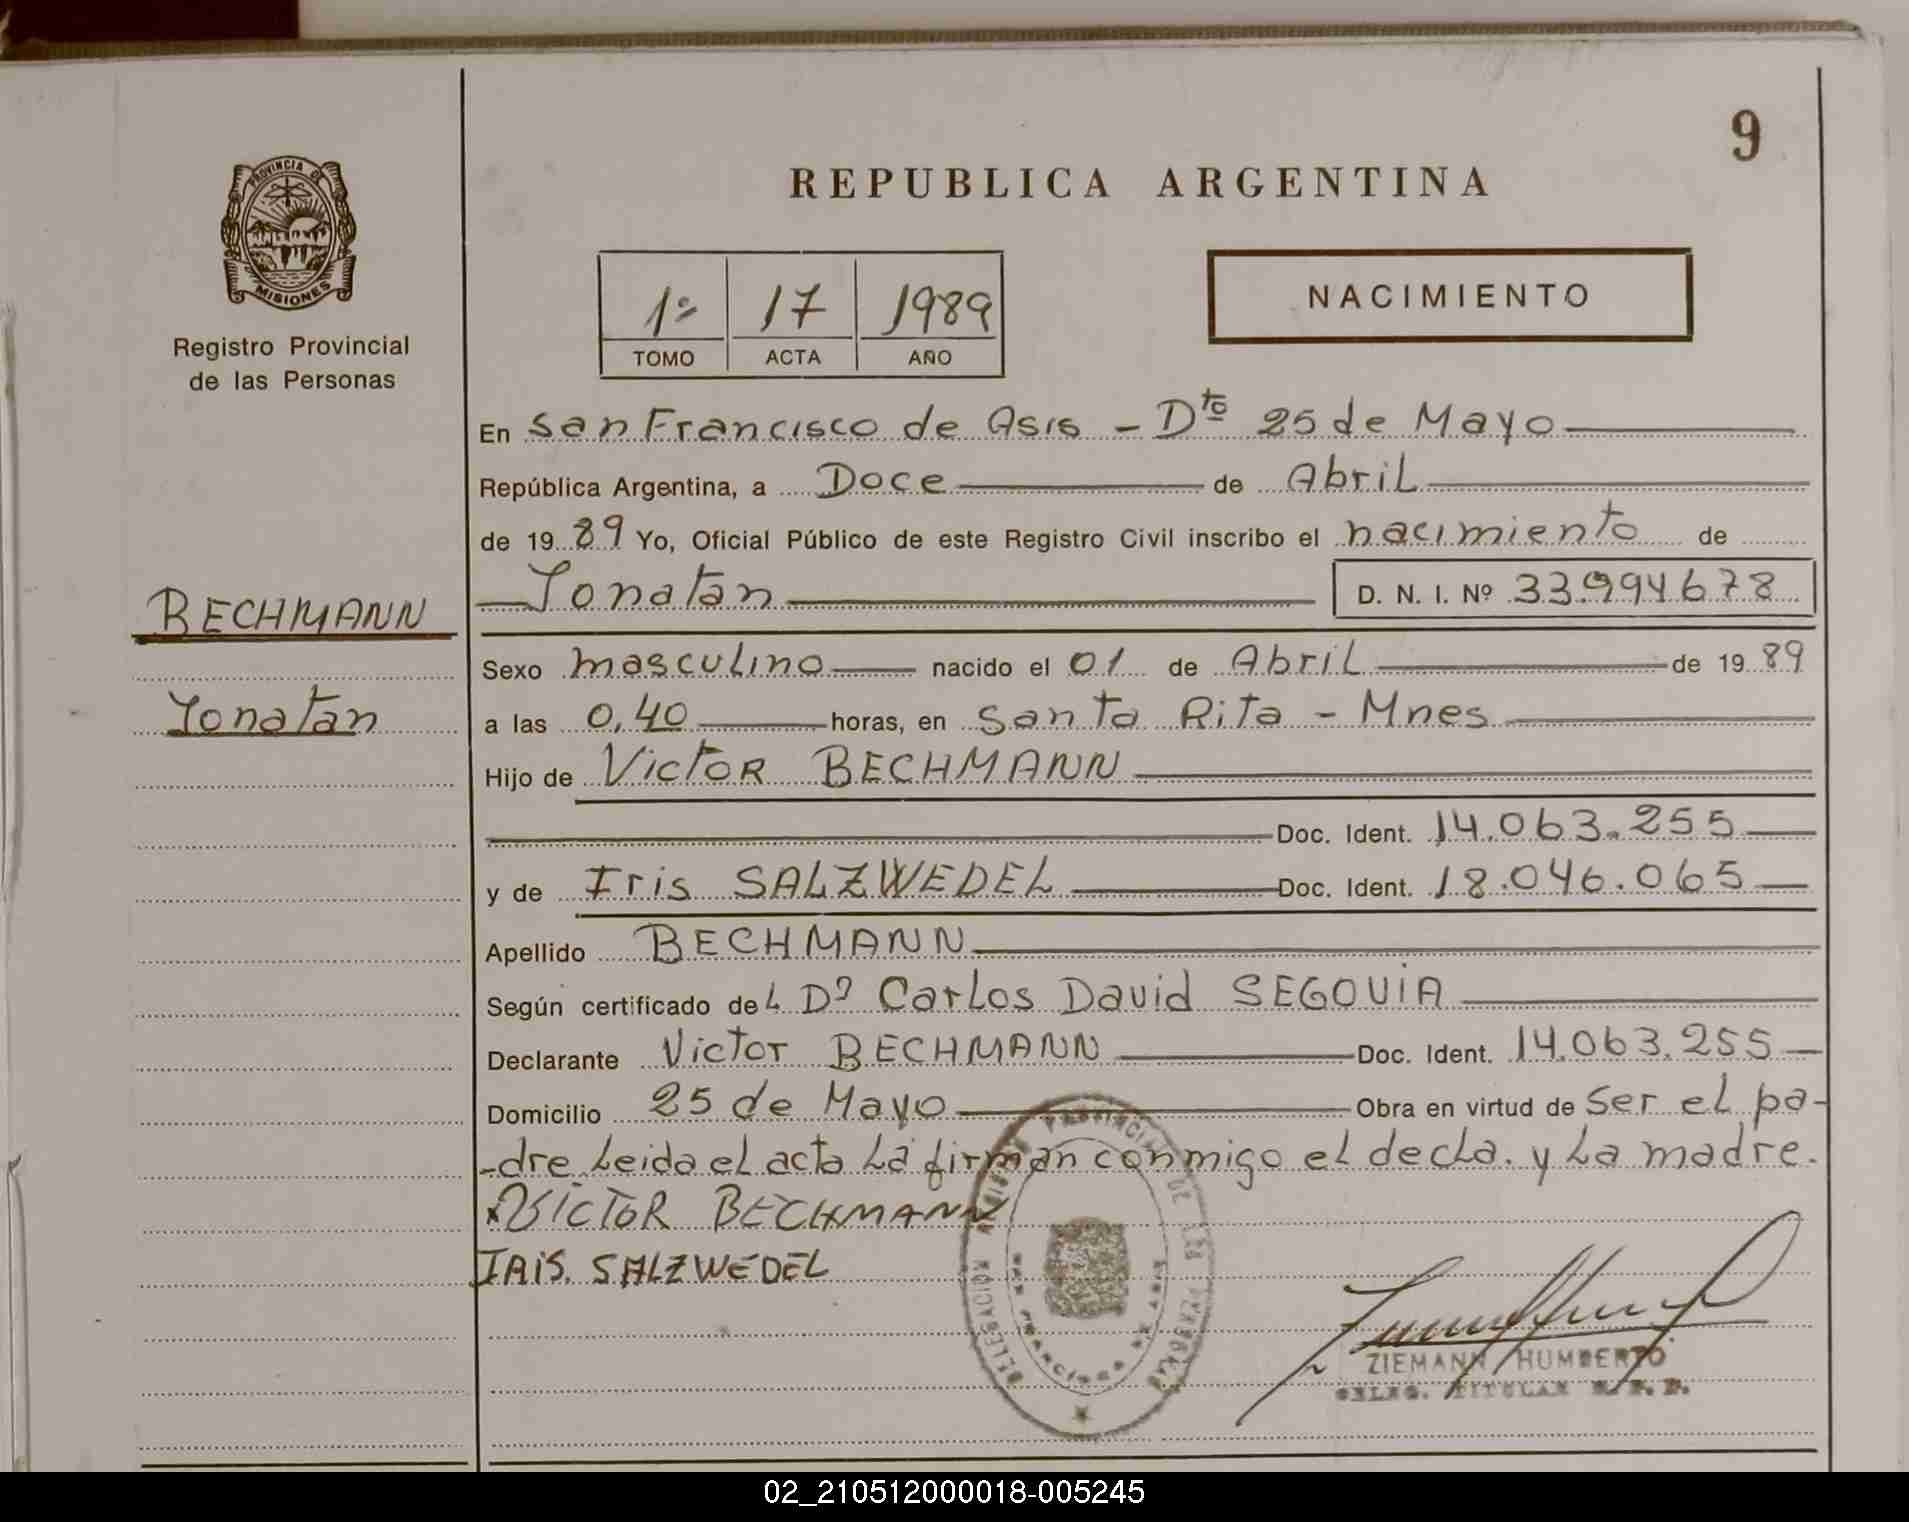 9
PROVINCIA DE
MISIONES
Registro Provincial
de las Personas
REPUBLICA ARGENTINA
1º 17 1989
TOMO ACTA AÑO
NACIMIENTO
En San Francisco de Asis - Dto 25 de Mayo
República Argentina, a Doce de Abril
de 1989 Yo, Oficial Público de este Registro Civil inscribo el nacimiento de
Jonatan D. N. I. Nº 33.994678
BECHMANN
Jonatan
Sexo masculino nacido el 01 de Abril de 1989
a las 0,40 horas, en Santa Rita - Mnes
Hijo de Victor BECHMANN
Doc. Ident. 14.063.255
y de Iris SALZWEDEL Doc. Ident. 18.046.065
Apellido BECHMANN
Según certificado del Dº Carlos David SEGOVIA
Declarante Victor BECHMANN Doc. Ident. 14.063.255
Domicilio 25 de Mayo Obra en virtud de ser el pa-
-dre Leida el acta la firman conmigo el decla. y la madre.
x VICTOR BECHMANN
IRIS. SALZWEDEL
DELEGACION REGISTRO PROVINCIAL DE LAS PERSONAS
SAN FRANCISCO DE ASIS
ZIEMANN HUMBERTO
DELEG. TITULAR R. P. P.
02_210512000018-005245